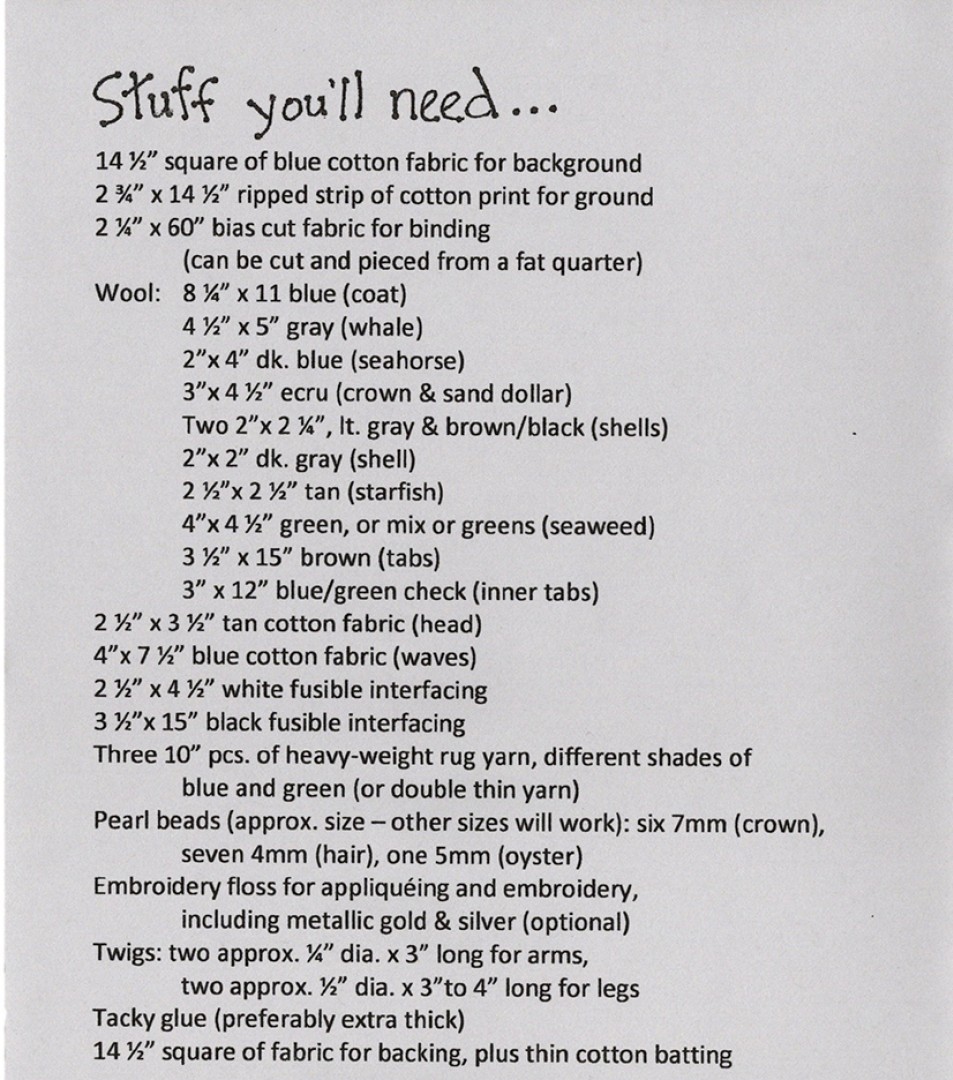 Stuff you'll need...
14 ½” square of blue cotton fabric for background
2 ¾” x 14 ½” ripped strip of cotton print for ground
2 ¼” x 60” bias cut fabric for binding
(can be cut and pieced from a fat quarter)
Wool: 8 ¼” x 11 blue (coat)
4 ½” x 5” gray (whale)
2”x 4” dk. blue (seahorse)
3”x 4 ½” ecru (crown & sand dollar)
Two 2”x 2 ¼”, lt. gray & brown/black (shells)
2”x 2” dk. gray (shell)
2 ½”x 2 ½” tan (starfish)
4”x 4 ½” green, or mix or greens (seaweed)
3 ½” x 15” brown (tabs)
3” x 12” blue/green check (inner tabs)
2 ½” x 3 ½” tan cotton fabric (head)
4”x 7 ½” blue cotton fabric (waves)
2 ½” x 4 ½” white fusible interfacing
3 ½”x 15” black fusible interfacing
Three 10” pcs. of heavy-weight rug yarn, different shades of
blue and green (or double thin yarn)
Pearl beads (approx. size – other sizes will work): six 7mm (crown),
seven 4mm (hair), one 5mm (oyster)
Embroidery floss for appliquéing and embroidery,
including metallic gold & silver (optional)
Twigs: two approx. ¼” dia. x 3” long for arms,
two approx. ½” dia. x 3”to 4” long for legs
Tacky glue (preferably extra thick)
14 ½” square of fabric for backing, plus thin cotton batting